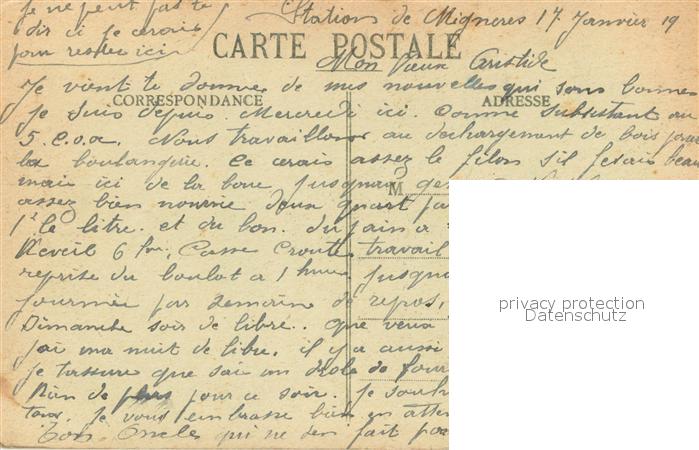 je ne peut pas te
dir ci je cerais
pour rester ici
Station de Migneres 17 Janvier 19
CARTE POSTALE
Mon vieux Aristide
Je vient te donner de mes nouvelles qui sons bonnes
CORRESPONDANCE
ADRESSE
Je suis depuis Mercredi ici. Comme subsistant au
5. C.O.A. Nous travaillons au dechargement de bois pour
la boulangerie. Ce cerais assez le filon s'il ferais beau
mais ici de la boue jusquau
M
assez bien nourrie deux quart
1F le litre. et du bon. du pain a
Reveil 6 hrs, Casse Croute travail
reprise du boulot a 1 heure jusqua
journée par semaine de repos,
Dimanche soir de libre. que veux
jai ma nuit de libre. il y a aussi
je tassure que sai un drole de four
Rien de plus pour ce soir. Je souh
toux. Je vous embrasse bien en atten
Ton Oncles qui ne sen fait pas
privacy protection
Datenschutz